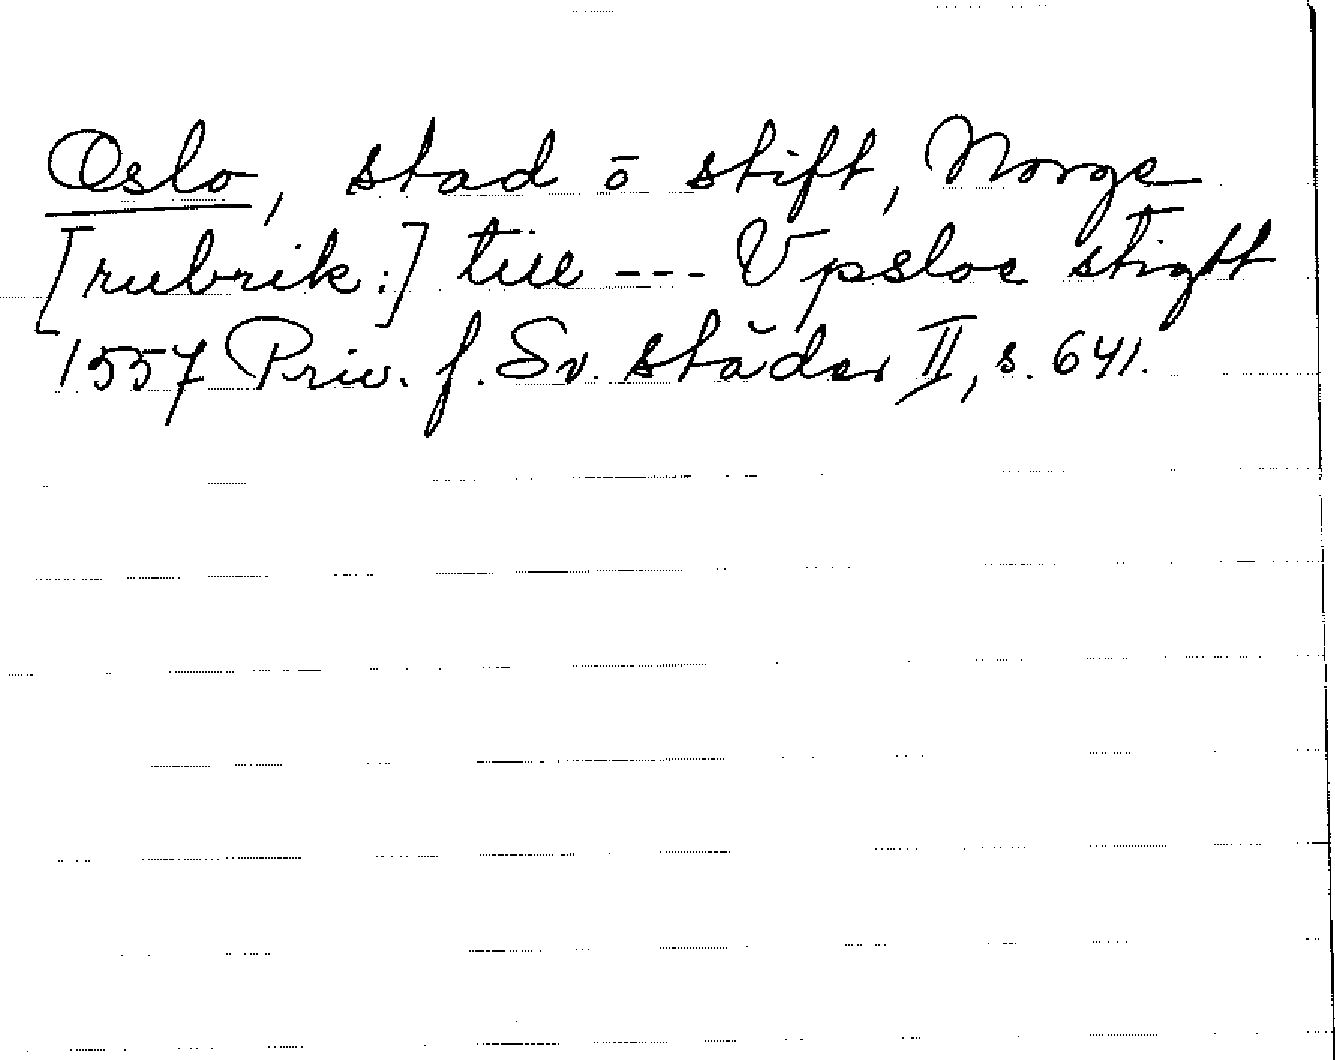 Oslo, stad ō stift, Norge
[rubrik:] till --- Vpsloe stigtt
1557 Priv. f. Sv. städer II, s. 641.